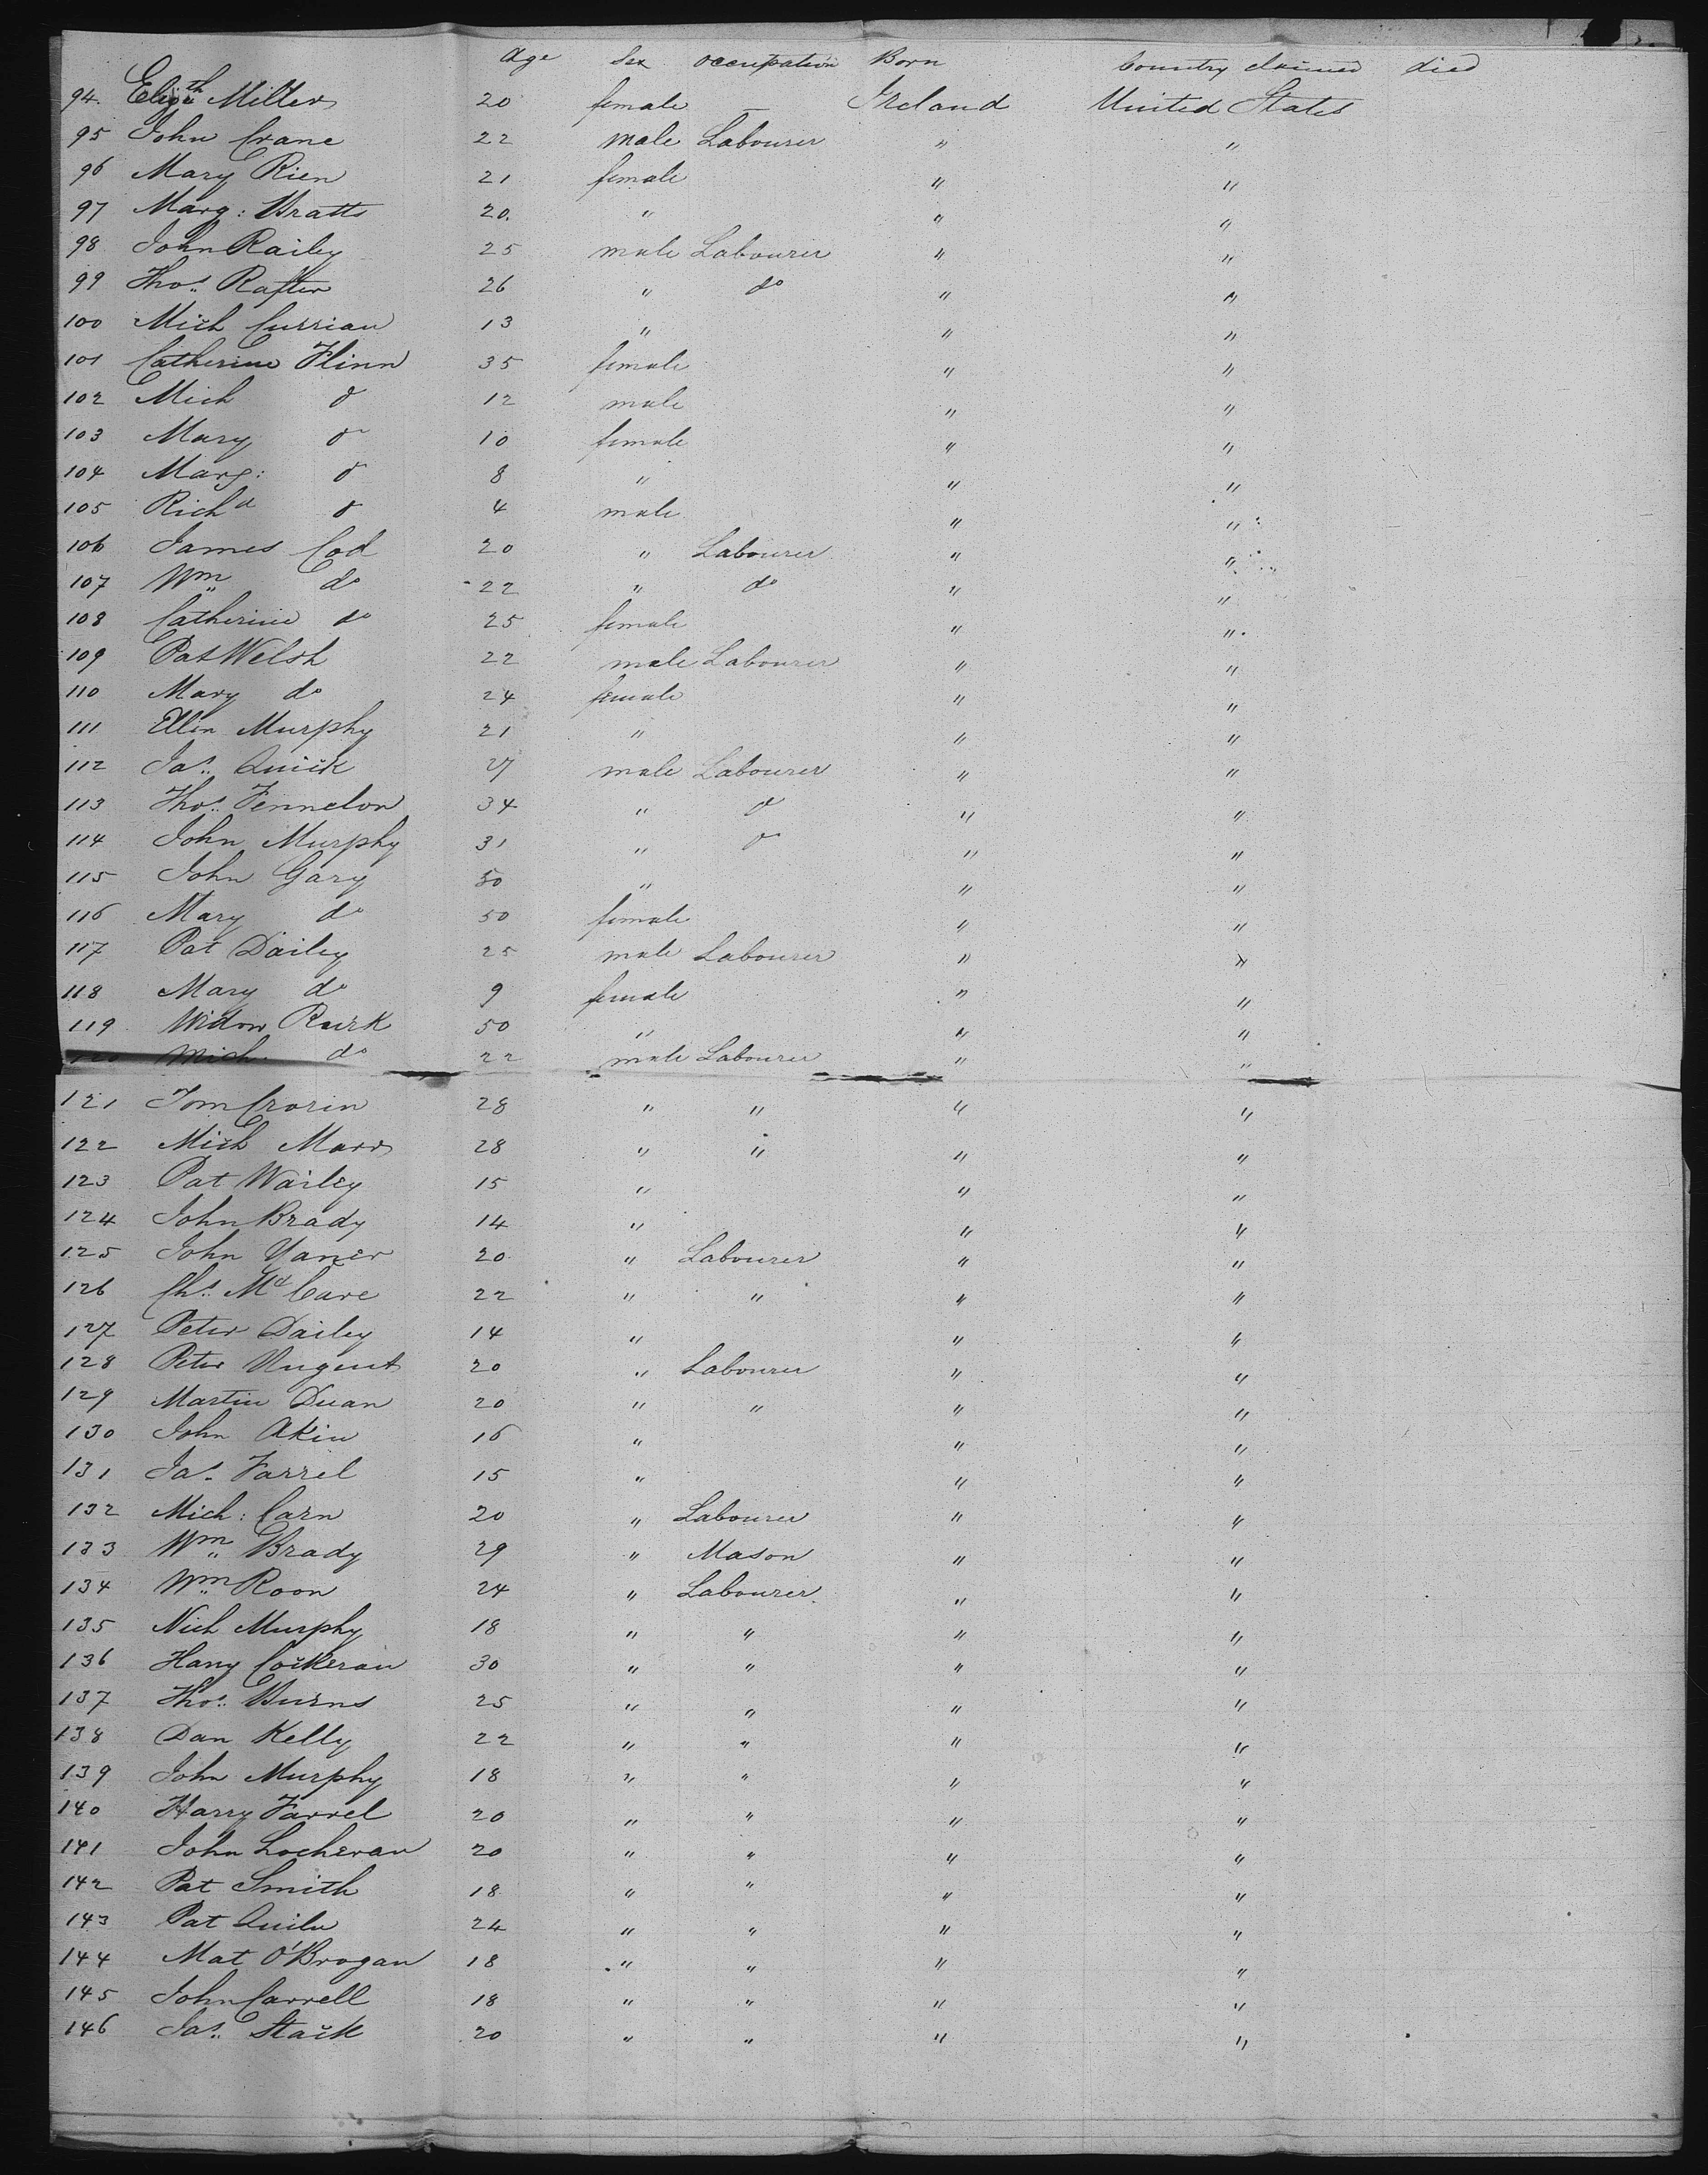 Age Sex occupation Born Country claimed died
94. Elizath Miller 20 female — Ireland United States
95 John Crane 22 male Labourer " "
96 Mary Rien 21 female " "
97 Marg: Bratts 20. " " "
98 John Railey 25 male Labourer " "
99 Thos. Rafter 26 " do " "
100 Mich Currian 13 " " "
101 Catherine Flinn 35 female " "
102 Mich do 12 male " "
103 Mary do 10 female " "
104 Marg: do 8 " " "
105 Richd do 4 male " "
106 James Cod 20 " Labourer " "
107 Wm do 22 " do " "
108 Catherine do 25 female " "
109 Pat Welsh 22 male Labourer " "
110 Mary do 24 female " "
111 Ellen Murphy 21 " " "
112 Jas. Quick 27 male Labourer " "
113 Thos. Fennelon 34 " do " "
114 John Murphy 31 " do " "
115 John Gary 50 " " "
116 Mary do 50 female " "
117 Pat Dailey 25 male Labourer " "
118 Mary do 9 female " "
119 Widow Rurk 50 " " "
120 Mich. do 22 male Labourer " "
121 Tom Crorin 28 " " " "
122 Mich Marr 28 " " " "
123 Pat Wailey 15 " " "
124 John Brady 14 " " "
125 John Yaner 20 " Labourer " "
126 Chs. McCare 22 " " " "
127 Peter Dailey 14 " " "
128 Peter Nugent 20 " Labourer " "
129 Martin Duan 20 " " " "
130 John Akin 16 " " "
131 Jas. Farrel 15 " " "
132 Mich: Carn 20 " Labourer " "
133 Wm Brady 29 " Mason " "
134 Wm Roon 24 " Labourer " "
135 Nich Murphy 18 " " " "
136 Hany Cockeran 30 " " " "
137 Thos. Burns 25 " " " "
138 Dan Kelly 22 " " " "
139 John Murphy 18 " " " "
140 Harry Farrel 20 " " " "
141 John Locheran 20 " " " "
142 Pat Smith 18 " " " "
143 Pat Quilu 24 " " " "
144 Mat O'Brogan 18 " " " "
145 John Carrell 18 " " " "
146 Jas. Stack 20 " " " "